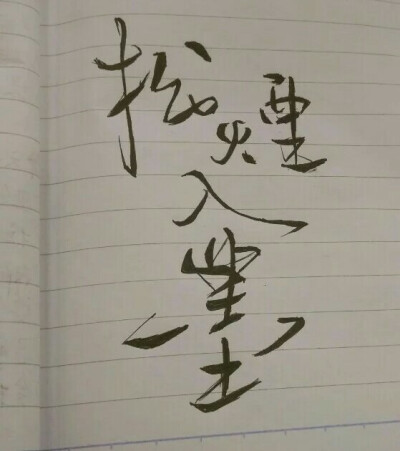 松煙
入
墨